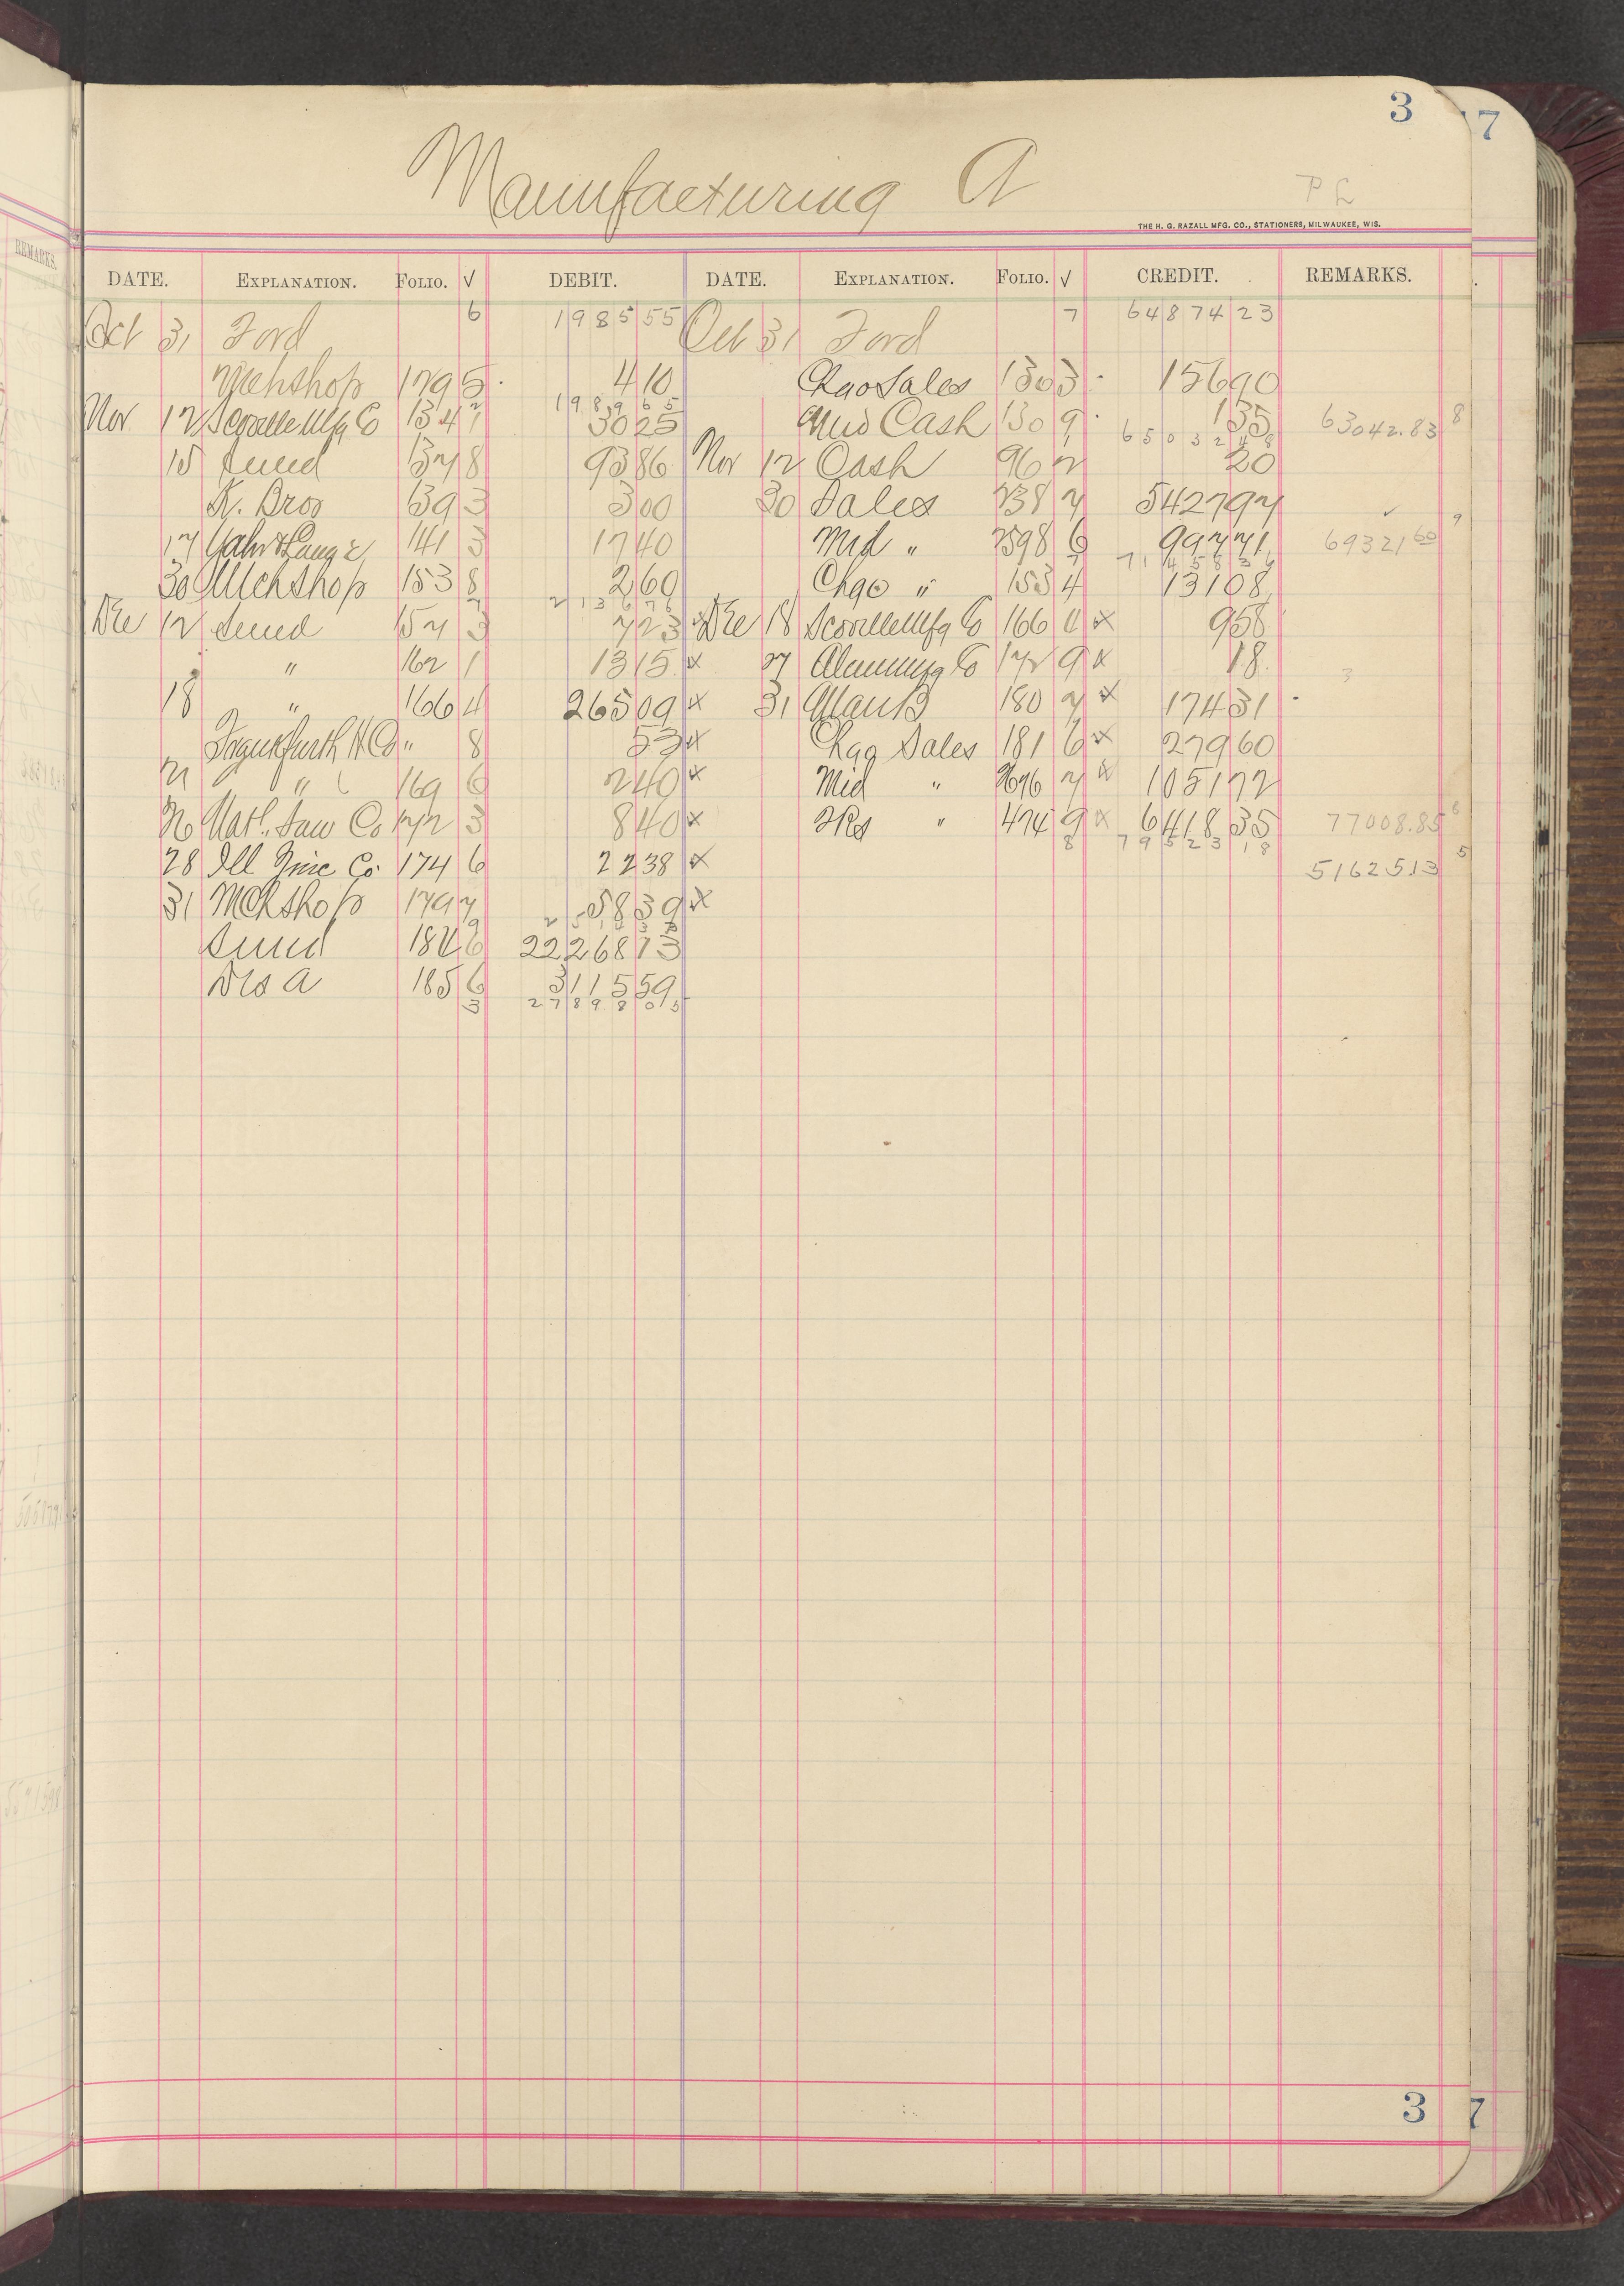 3
7
Manufacturing A
P L
THE H. G. RAZALL MFG. CO., STATIONERS, MILWAUKEE, WIS.
REMARKS.
DATE. EXPLANATION. FOLIO. √ DEBIT. DATE. EXPLANATION. FOLIO. √ CREDIT. REMARKS.
Oct 31 Ford 6 1985 55 Oct 31 Ford 7 64874 23
Mchshop 129 5 4 10 Chgo Sales 130 3 156 90
198965
Nov 12 Scoville Mfg Co 134 1 30 25 Mid Cash 130 9 1 35 63042.83 8
6503248
15 Sund 137 8 93 86 Nov 12 Cash 96 2 20
K. Bros 139 3 3 00 30 Sales 238 7 5427 97
17 Yahr & Lange 141 3 17 40 Mid " 2598 6 997 71 69321 60 9
7145836
30 Mchshop 153 8 2 60 Chgo " 153 4 131 08
213676
Dec 12 Sund 157 3 7 23 x Dec 18 Scoville Mfg Co 166 4 x 9 58
" 162 1 13 15 x 27 172 9 x 18
18 " 166 4 265 09 x 31 180 7 x 174 31
Frankfurth H Co " 8 53 x Chgo Sales 181 6 x 279 60
21 " " 169 6 2 40 x Mid " 2676 7 x 1051 72
26 Natl. Saw Co 172 3 8 40 x " 474 9 x 6418 35 77008.85 6
8 7952318
28 Ill Zinc Co 174 6 22 38 x 51625.13 5
31 Mchshop 179 7 58 39 x
Sund 184 6 22268 73
Dis A 185 6 3115 59
3 2789805
3
7